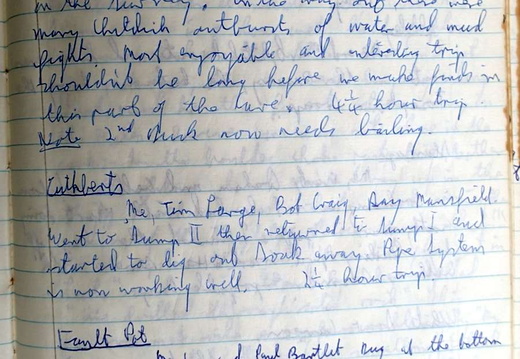 in the the way out there were
many childish outbursts of water and mud
fights. Most enjoyable and interesting trip
shouldn't be long before we make finds in
this part of the cave. 4¼ hour trip.
Note 2nd Duck now needs bailing.
Cuthberts
Me, Tim Large, Bob Craig, Ray Mansfield.
Went to Sump II then returned to Sump I and
started to dig out Soak away. Pipe System
is now working well. 2¼ hour trip.
Fault Pot
and Paul Bartlet Dug at the bottom